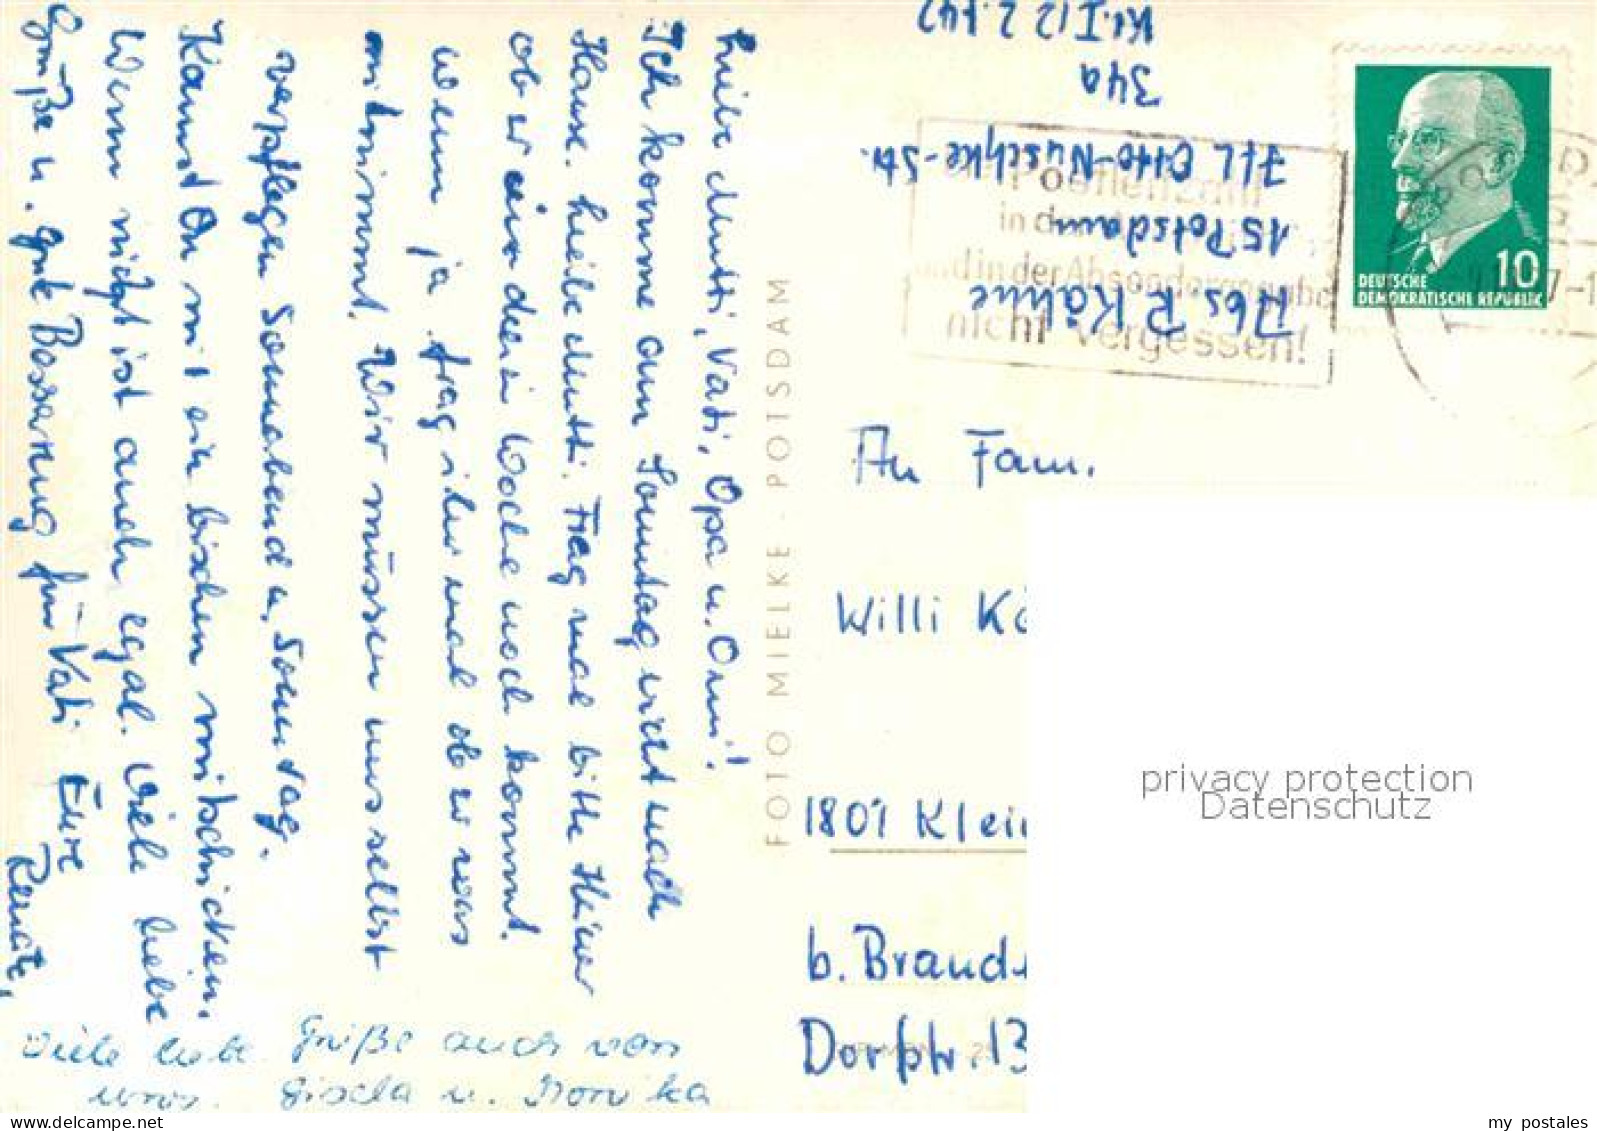 Liebe Mutti, Vati, Opa u. Omi!
Ich komme am Sonntag nicht nach
Hause. Liebe Mutti. Frag mal bitte Heiner
ob er diese Woche noch kommt.
wenn ja frag ihn mal ob er was
mitnimmt. Wir müssen uns selbst
verpflegen Sonnabend u. Sonntag.
Kannst Du mir ein bischen mitschicken.
Wenn nicht ist auch egal. Viele liebe
Grüße u. gute Besserung für Vati Eure
Renate,
Viele liebe Grüße auch von
uns. Gisela u. Monika
FOTO MIELKE · POTSDAM
Kl. I/2
34a
IfL Otto-Nuschke-Str.
15 Potsdam
Abs R. Kähne
in der
und in der Absenderangabe
nicht vergessen!
10
DEUTSCHE
DEMOKRATISCHE REPUBLIK
An Fam.
Willi Kä
1801 Klein
b. Brand
Dorfstr. 13
privacy protection
Datenschutz
www.delcampe.net
my_postales